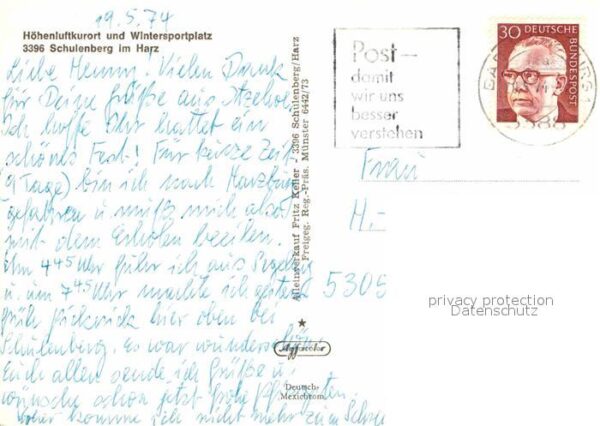 19.5.74
Höhenluftkurort und Wintersportplatz
3396 Schulenberg im Harz
Liebe Henni! Vielen Dank
für Deine Grüße aus Itzehoe.
Ich hoffe Ihr hattet ein
schönes Fest! Für kurze Zeit
(9 Tage) bin ich nach Harzburg
gefahren u. muß mich also
mit dem Erholen beeilen.
Um 4 45 Uhr fuhr ich aus Segeberg
u. um 7 45 Uhr machte ich gestern
früh Picknick hier oben bei
Schulenberg. Es war wunderschön.
Euch allen sende ich Grüße u.
wünsche schon jetzt frohe Pfingsten.
komme ich nicht mehr zum
Alleinverkauf Fritz Keller - 3396 Schulenberg/Harz
Freigeg. Reg.-Präs. Münster 6442/73
Agfacolor
Deutsch-
Mexichrom
Post-
damit
wir uns
besser
verstehen
30 DEUTSCHE
BUNDESPOST
3388
Frau
H.-
5306
privacy protection
Datenschutz